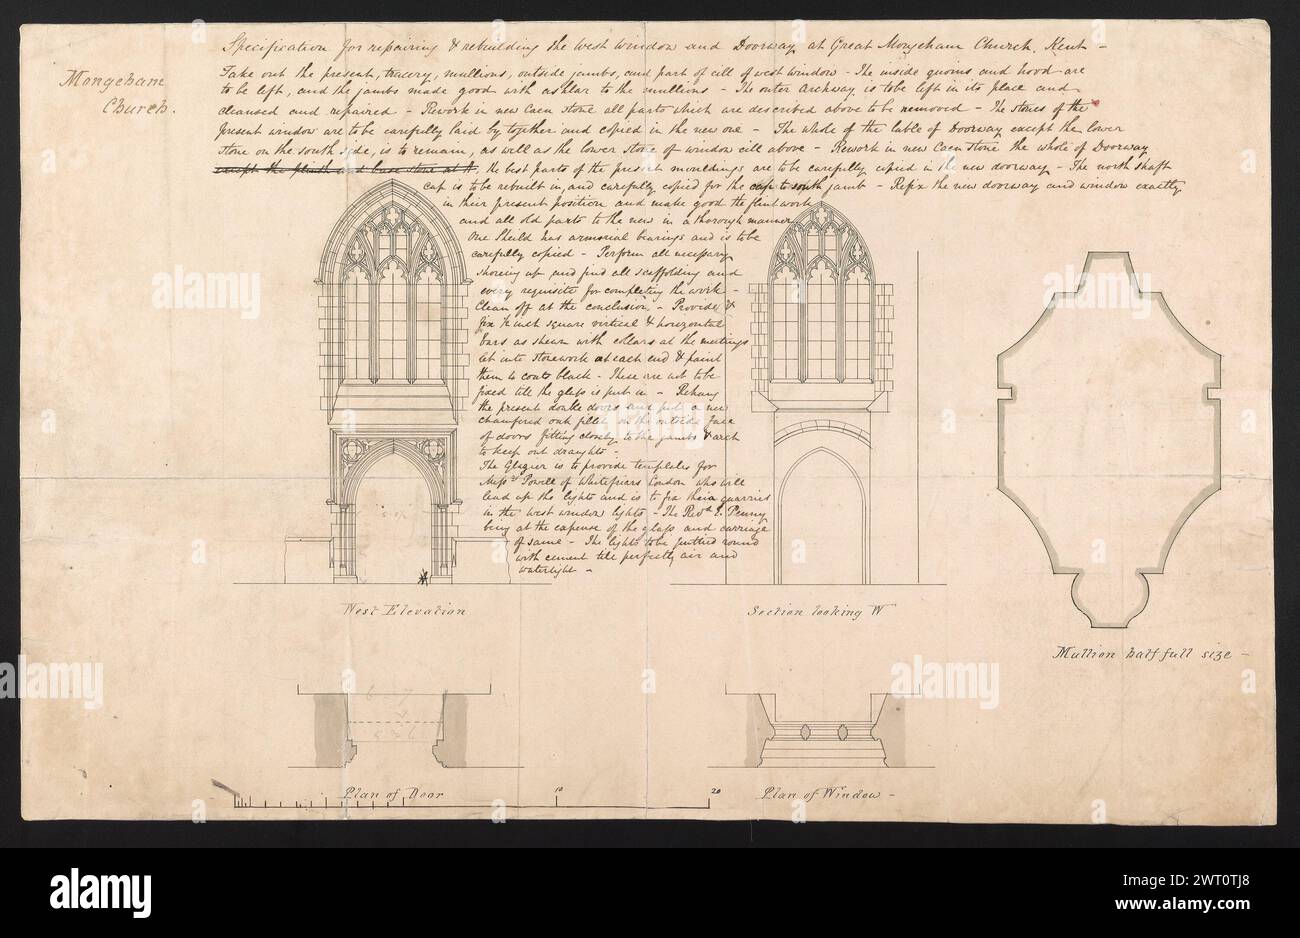 Mongeham
Church.
Specification for repairing & rebuilding the West Window and Doorway at Great Mongeham Church, Kent -
Take out the present, tracery, mullions, outside jambs, and part of cill of west window - The inside quoins and hood are
to be left, and the jambs made good with ashlar to the mullions - The outer archway is to be left in its place and
cleansed and repaired - Rework in new Caen Stone all parts which are described above to be removed - The stones of the
present window are to be carefully laid by together and copied in the new one - The whole of the label of Doorway except the lower
stone on the south side, is to remain, as well as the lower stone of window cill above - Rework in new Caen Stone the whole of Doorway
except the plinth and base stone at it, the best parts of the present mouldings are to be carefully copied in the new doorway - The north shaft
cap is to be rebuilt in, and carefully copied for the cap to south jamb - Refix the new doorway and window exactly
in their present position and make good the flint work
and all old parts to the new in a thorough manner
One Sheild has armorial bearings and is to be
carefully copied - Perform all necessary
shoreing up and find all scaffolding and
every requisite for completing the work -
Clean off at the conclusion - Provide &
fix ½ inch square vertical & horizontal
bars as shewn with collars at the meetings
let into stonework at each end & paint
them 4 coats black - These are not to be
fixed till the glass is put in - Rehang
the present double doors and put a new
chamfered oak fillet on the outside face
of doors fitting closely to the jambs & arch
to keep out draughts -
The Glazier is to provide templates for
Messrs Powell of Whitefriars London who will
lead up the lights and is to fix their quarries
in the west window lights - The Revd E. Penny
being at the expense of the glass and carriage
of same - The lights to be puttied round
with cement till perfectly air and
watertight -
West Elevation
Section looking W
Mullion half full size -
Plan of Door
10
20
Plan of Window -
alamy
alamy
alamy
Image ID: 2WT0TJ8
www.alamy.com